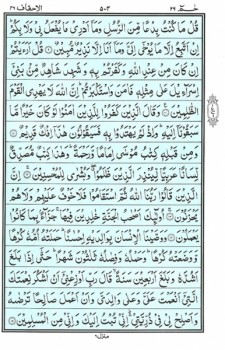 الاحقاف ٤٦ ٥٠٣ حٰمٓ ٢٦
قُلْ مَا كُنْتُ بِدْعًا مِّنَ الرُّسُلِ وَمَآ اَدْرِيْ مَا يُفْعَلُ بِيْ وَلَا بِكُمْ
اِنْ اَتَّبِعُ اِلَّا مَا يُوْحٰٓى اِلَيَّ وَمَآ اَنَا اِلَّا نَذِيْرٌ مُّبِيْنٌ ۝ قُلْ اَرَءَيْتُمْ
اِنْ كَانَ مِنْ عِنْدِ اللّٰهِ وَكَفَرْتُمْ بِهٖ وَشَهِدَ شَاهِدٌ مِّنْۢ بَنِيْٓ
اِسْرَآءِيْلَ عَلٰى مِثْلِهٖ فَاٰمَنَ وَاسْتَكْبَرْتُمْ ؕ اِنَّ اللّٰهَ لَا يَهْدِي الْقَوْمَ
الظّٰلِمِيْنَ ۝ وَقَالَ الَّذِيْنَ كَفَرُوْا لِلَّذِيْنَ اٰمَنُوْا لَوْ كَانَ خَيْرًا مَّا
سَبَقُوْنَآ اِلَيْهِ ؕ وَاِذْ لَمْ يَهْتَدُوْا بِهٖ فَسَيَقُوْلُوْنَ هٰذَآ اِفْكٌ قَدِيْمٌ ۝
وَمِنْ قَبْلِهٖ كِتٰبُ مُوْسٰٓى اِمَامًا وَّرَحْمَةً ؕ وَهٰذَا كِتٰبٌ مُّصَدِّقٌ
لِّسَانًا عَرَبِيًّا لِّيُنْذِرَ الَّذِيْنَ ظَلَمُوْا ۖ وَبُشْرٰى لِلْمُحْسِنِيْنَ ۝
اِنَّ الَّذِيْنَ قَالُوْا رَبُّنَا اللّٰهُ ثُمَّ اسْتَقَامُوْا فَلَا خَوْفٌ عَلَيْهِمْ وَلَا هُمْ
يَحْزَنُوْنَ ۝ اُولٰٓئِكَ اَصْحٰبُ الْجَنَّةِ خٰلِدِيْنَ فِيْهَا ۚ جَزَآءًۢ بِمَا كَانُوْا
يَعْمَلُوْنَ ۝ وَوَصَّيْنَا الْاِنْسَانَ بِوَالِدَيْهِ اِحْسٰنًا ؕ حَمَلَتْهُ اُمُّهٗ كُرْهًا
وَّوَضَعَتْهُ كُرْهًا ؕ وَحَمْلُهٗ وَفِصٰلُهٗ ثَلٰثُوْنَ شَهْرًا ؕ حَتّٰٓى اِذَا بَلَغَ
اَشُدَّهٗ وَبَلَغَ اَرْبَعِيْنَ سَنَةً ۙ قَالَ رَبِّ اَوْزِعْنِيْٓ اَنْ اَشْكُرَ نِعْمَتَكَ
الَّتِيْٓ اَنْعَمْتَ عَلَيَّ وَعَلٰى وَالِدَيَّ وَاَنْ اَعْمَلَ صَالِحًا تَرْضٰىهُ
وَاَصْلِحْ لِيْ فِيْ ذُرِّيَّتِيْ ؕ اِنِّيْ تُبْتُ اِلَيْكَ وَاِنِّيْ مِنَ الْمُسْلِمِيْنَ ۝
منزل ٦